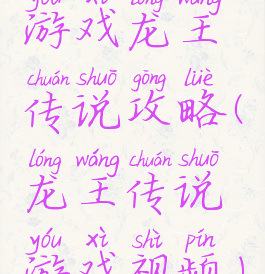 yóu xì lóng wáng
游戏龙王
chuán shuō gōng lüè
传说攻略(
lóng wáng chuán shuō
龙王传说
yóu xì shì pín
游戏视频)